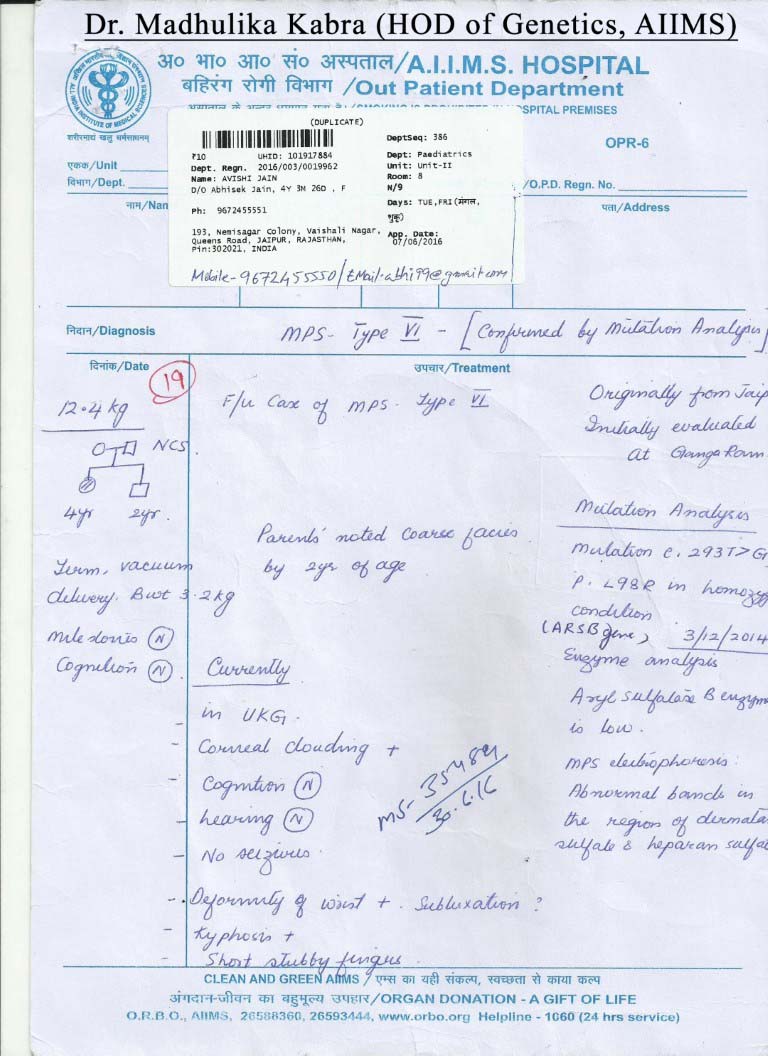 Dr. Madhulika Kabra (HOD of Genetics, AIIMS)
अ० भा० आ० सं० अस्पताल/A.I.I.M.S. HOSPITAL
बहिरंग रोगी विभाग /Out Patient Department
HOSPITAL PREMISES
शरीरमाद्यं खलु धर्मसाधनम्
OPR-6
एकक/Unit
विभाग/Dept.
/O.P.D. Regn. No.
नाम/Nam
पता/Address
(DUPLICATE)
₹10 UHID: 101917884
Dept. Regn. 2016/003/0019962
Name: AVISHI JAIN
D/O Abhisek Jain, 4Y 3M 26D , F
Ph: 9672455551
193, Nemisagar Colony, Vaishali Nagar,
Queens Road, JAIPUR, RAJASTHAN,
Pin:302021, INDIA
DeptSeq: 386
Dept: Paediatrics
Unit: Unit-II
Room: 8
N/9
Days: TUE,FRI(मंगल,
शुक्र)
App. Date:
07/06/2016
Mobile-9672455550/EMail-abhi99@gmail.com
निदान/Diagnosis
MPS- Type VI - [Confirmed by Mutation Analysis]
दिनांक/Date
उपचार/Treatment
19
12.4 kg
NCS
4yr 2yr.
Term, vacuum
delivery. Bwt 3.2kg
Milestones (N)
Cognition (N)
F/U Case of MPS- Type VI
Parents' noted coarse facies
by 2yr of age
Currently
- in UKG.
- Corneal clouding +
- Cognition (N)
- hearing (N)
- No seizures.
- Deformity of wrist + . Subluxation ?
- Kyphosis +
- Short stubby fingers
MS- 35484
30.6.16
Originally from Jaip
Initially evaluated
at Ganga Ram
Mutation Analysis
Mutation c. 293T>G
p. L98R in homozy
condition
(ARSB gene) 3/12/2014
Enzyme analysis
Aryl sulfatase B enzyme
is low.
MPS electrophoresis:
Abnormal bands in
the region of dermata
sulfate & heparan sulfat
CLEAN AND GREEN AIIMS / एम्स का यही संकल्प, स्वच्छता से काया कल्प
अंगदान-जीवन का बहुमूल्य उपहार/ORGAN DONATION - A GIFT OF LIFE
O.R.B.O., AIIMS, 26588360, 26593444, www.orbo.org Helpline - 1060 (24 hrs service)